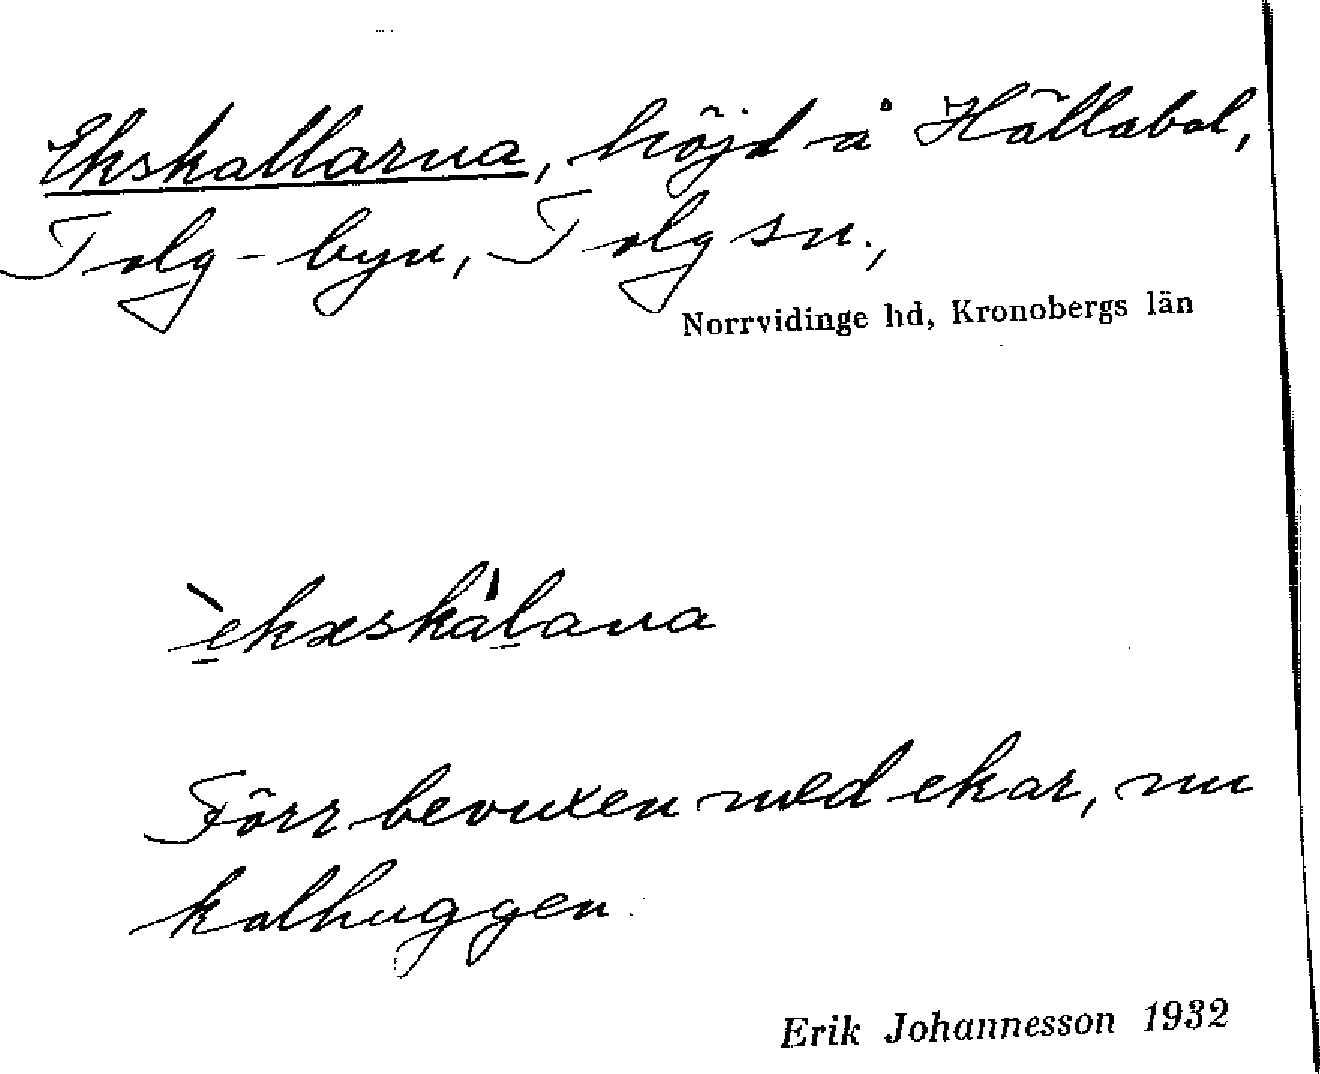 Ekskallarna, höjd å Hällabol,
Tolg-byn, Tolg sn.,
Norrvidinge hd, Kronobergs län
Förr bevuxen med ekar, nu
kalhuggen.
Erik Johannesson 1932